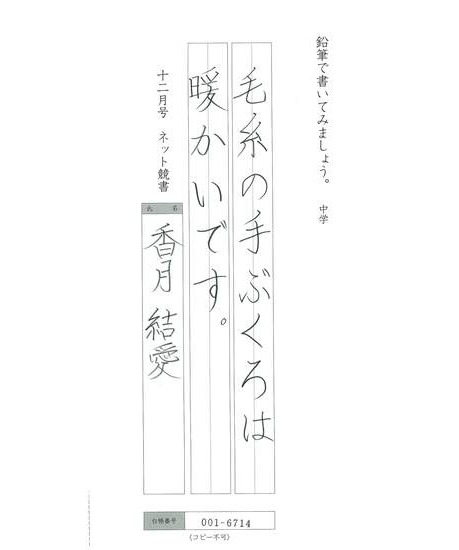 鉛筆で書いてみましょう。 中学
毛糸の手ぶくろは
暖かいです。
十二月号 ネット競書
氏名
香月 結愛
台帳番号
001-6714
(コピー不可)